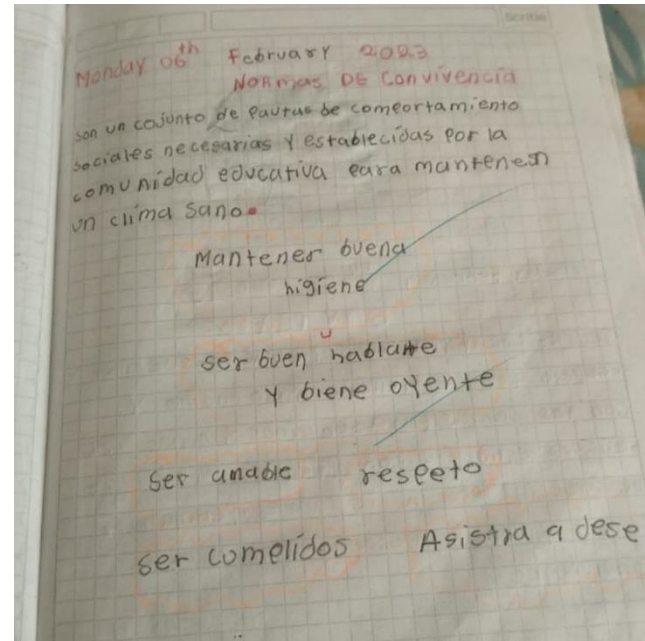 Scribe
Monday 06th February 2023
NORMAS DE Convivencia
son un cojunto de Pautas de comportamiento
sociales necesarias y establecidas Por la
comunidad educativa para mantener
un clima sano.
Mantener buena
higiene
ser buen hablante
y biene oyente
Ser amable respeto
ser comelidos Asistra a dese